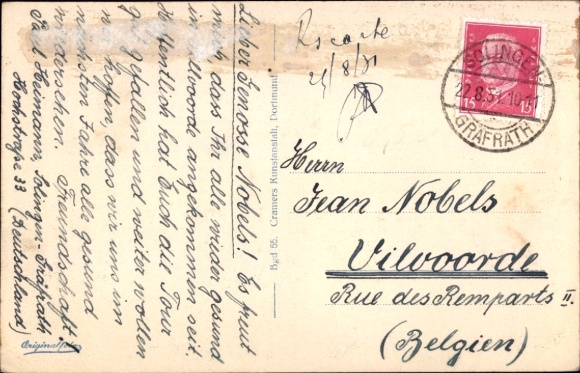 Lieber Genosse Nobels! Es freut
mich dass Ihr alle wieder gesund
in Vilvoorde angekommen seit.
Hoffentlich hat Euch die Tour
gefallen und weiter wollen
hoffen, dass wir uns im
nächsten Jahre alle gesund
wiedersehen. Freundschaft
Heimann, Solingen-Gräfrath
Hochstraße 33 (Deutschland)
Originalfoto
Bgd 55. Cramers Kunstanstalt, Dortmund
/8/31
15 15
SOLINGEN
22.8.31.10-11
GRÄFRATH
Herrn
Jean Nobels
Vilvoorde
Rue des Remparts II.
(Belgien)